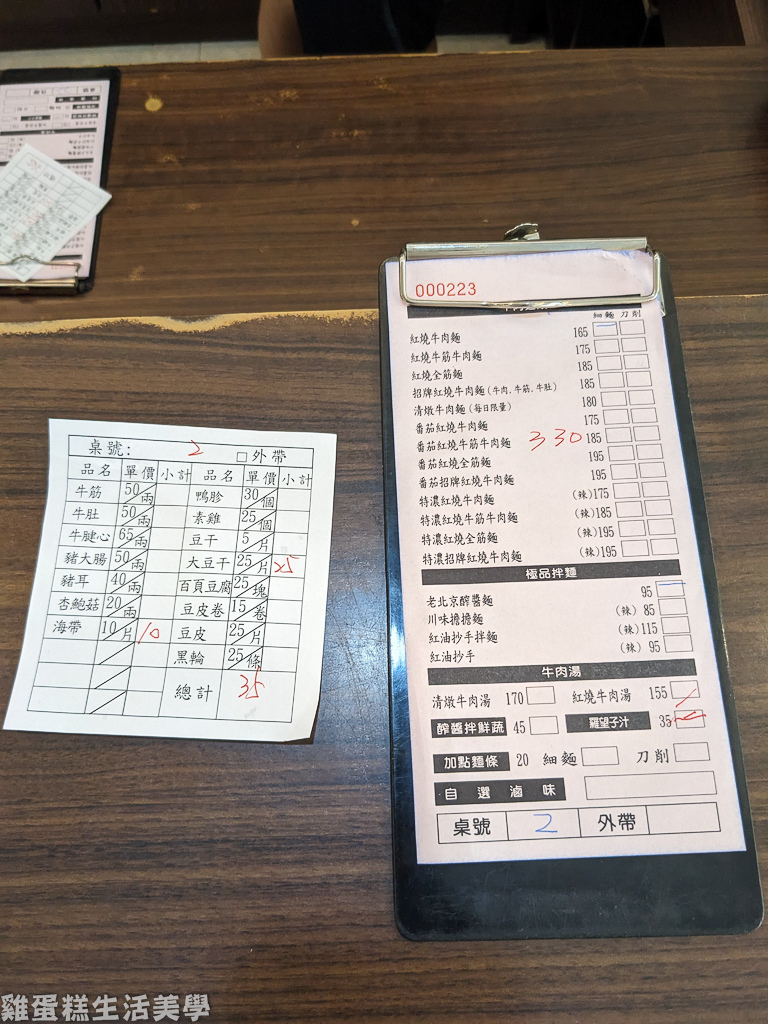 000223
細麵 刀削
紅燒牛肉麵 165
紅燒牛筋牛肉麵 175
紅燒全筋麵 185
招牌紅燒牛肉麵(牛肉.牛筋.牛肚) 185
清燉牛肉麵(每日限量) 180
番茄紅燒牛肉麵 175
番茄紅燒牛筋牛肉麵 185
330
番茄紅燒全筋麵 195
番茄招牌紅燒牛肉麵 195
特濃紅燒牛肉麵 (辣)175
特濃紅燒牛筋牛肉麵 (辣)185
特濃紅燒全筋麵 (辣)195
特濃招牌紅燒牛肉麵 (辣)195
極品拌麵
老北京醡醬麵 95
川味擔擔麵 (辣) 85
紅油抄手拌麵 (辣)115
紅油抄手 (辣) 95
牛肉湯
清燉牛肉湯 170 紅燒牛肉湯 155
醡醬拌鮮蔬 45 羅望子汁 35
加點麵條 20 細麵 刀削
自選滷味
桌號 2 外帶
桌號: 2 □外帶
品名 單價 小計 品名 單價 小計
牛筋 50/兩 鴨胗 30/個
牛肚 50/兩 素雞 25/個
牛腱心 65/兩 豆干 5/片
豬大腸 50/兩 大豆干 25/片 25
豬耳 40/兩 百頁豆腐 25/塊
杏鮑菇 20/兩 豆皮卷 15/卷
海帶 10/片 10 豆皮 25/片
黑輪 25/條
總計 35
雞蛋糕生活美學